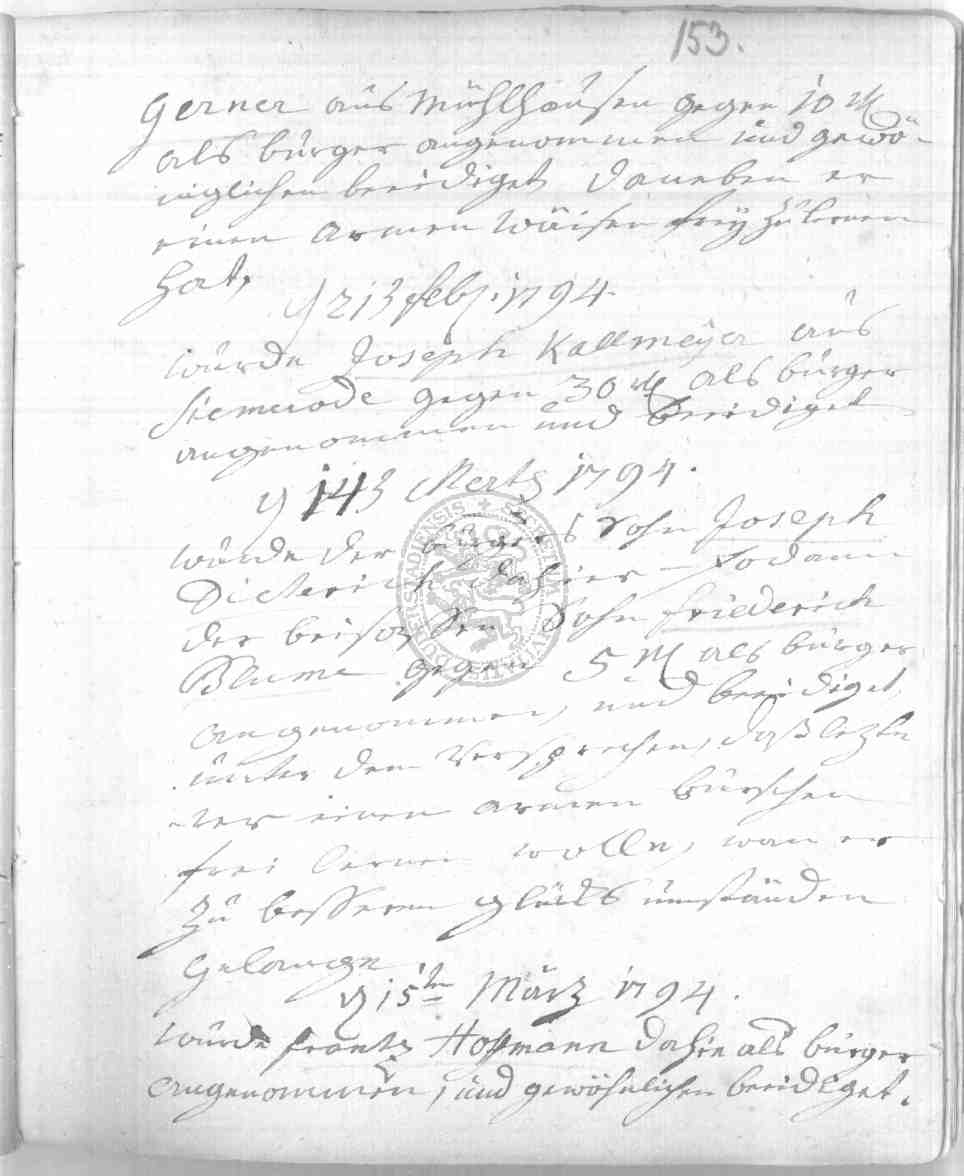 153.
Gerner aus Mühlhausen gegen 10 rthl
als bürger angenommen und gewö-
nglichen beeidiget, daneben er
einen armen Waisen frey zu lernen
hat,
d 13 febr. 1794.
wurde Joseph Kallmeyer aus
Siemerode gegen 30 rthl als bürger
angenommen und beeidiget
d 14 Mertz 1794.
wurde der bürgers Sohn Joseph
Dieterich dahier – sodann
der beisassen Sohn friederich
Blume gegen 5 rthl als bürger
angenommen, und beeidiget,
unter dem Versprechen, daß letzte
rer einen armen burschen
frei lernen wolle, wan er
zu besseren glücks umständen
gelange
d 15ten März 1794.
wurde frantz Hopmann dahie als bürger
angenommen, und gewöhnlichen beeidiget.